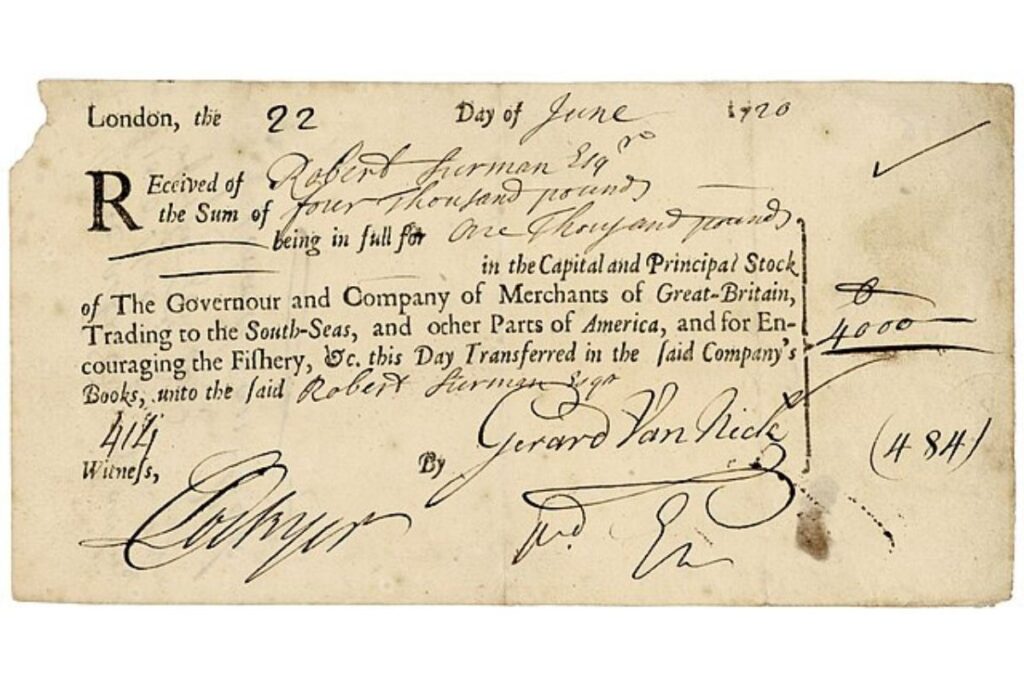 London, the 22 Day of June 1720
REceived of Robert Surman Esqr
the Sum of four Thousand pounds
being in full for One Thousand pounds
in the Capital and Principal Stock
of The Governour and Company of Merchants of Great-Britain,
Trading to the South-Seas, and other Parts of America, and for En-
couraging the Fiſhery, &c. this Day Transferred in the ſaid Company's
Books, unto the ſaid Robert Surman Esqr
4000
414
Witneſs,
By Gerard Van Neck
(484)
Lockyer